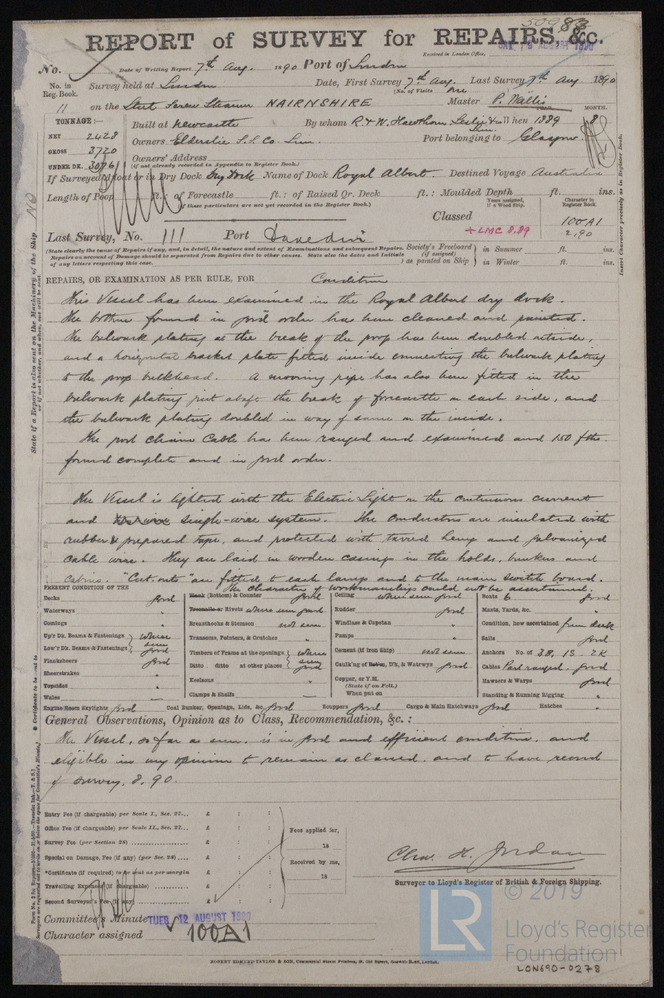 REPORT of SURVEY for REPAIRS, &c.
Received in London Office,
No. Date of Writing Report 7th Aug. 1890 Port of London
No. in Reg. Book. Survey held at London Date, First Survey 7th Aug. Last Survey 7th Aug 1890
(No. of Visits one)
11 on the NAIRNSHIRE Master P. Wallis
TONNAGE:—
NET 2428
GROSS 3720
UNDER DK. 3076
Built at Newcastle By whom R & W. Hawthorn Leslie & Co Lim. When 1889 MONTH. 8
Owners Elderslie S.S. Co. Lim. Port belonging to Glasgow
Owners' Address
(if not already recorded in Appendix to Register Book.)
If Surveyed Afloat or in Dry Dock Dry Dock Name of Dock Royal Albert Destined Voyage Australia
Length of Poop ft.: of Forecastle ft.: of Raised Qr. Deck ft.: Moulded Depth ft. ins.
(If these particulars are not yet recorded in the Register Book.)
Years assigned, if a Wood Ship. Character in Register Book.
Classed 100A1
+LMC 8.89 2,90
Last Survey, No. 111 Port
(State clearly the cause of Repairs if any, and, in detail, the nature and extent of Examinations and subsequent Repairs.
Repairs on account of Damage should be separated from Repairs due to other causes. State also the dates and Initials
of any letters respecting this case.
Society's Freeboard (if assigned) as painted on Ship in Summer ft. ins.
in Winter ft. ins.
REPAIRS, OR EXAMINATION AS PER RULE, FOR Condition
This Vessel has been examined in the Royal Albert dry dock.
The bottom found in good order has been cleaned and painted.
The bulwark plating at the break of the poop has been doubled outside,
and a horizontal bracket plate fitted inside connecting the bulwark plating
to the poop bulkhead. A mooring pipe has also been fitted in the
bulwark plating just abaft the break of forecastle on each side, and
the bulwark plating doubled in way of same on the inside.
The port chain Cable has been ranged and examined and 150 fths.
found complete and in good order.
The Vessel is lighted with the Electric Light on the continuous current
and single-wire system. The conductors are insulated with
rubber & prepared tape, and protected with tarred hemp and galvanized
cable wire. They are laid in wooden casings in the holds, bunkers and
cabins. "Cut outs" are fitted to each lamp and to the main switch board.
The character of workmanship could not be ascertained.
PRESENT CONDITION OF THE
Decks good
Waterways "
Comings "
Up'r Dk. Beams & Fastenings where seen good
Low'r Dk. Beams & Fastenings
Planksheers good
Sheerstrakes "
Topsides "
Wales
Engine Room Skylights good
(Bottom) & Counter good
Rivets where seen good
Breasthooks & Stemson not seen
Transoms, Pointers, & Crutches "
Timbers of Frame at the openings where seen good
Ditto. ditto at other places
Keelsons "
Clamps & Shelfs
Coal Bunker, Openings, Lids, &c. good
Ceiling where seen good
Rudder good
Windlass & Capstan "
Pumps "
Cement (if Iron Ship) not seen
Caulk'ng of D'k, & Waterways good
Copper, or Y.M.
(State if on Felt.)
When put on
Scuppers good Cargo & Main Hatchways good
Boats 6 good
Masts, Yards, &c. "
Condition, how ascertained from deck
Sails good
Anchors No. of 3B, 1S, 2K
Cables Port ranged. good
Hawsers & Warps good
Standing & Running Rigging "
Hatches "
General Observations, Opinion as to Class, Recommendation, &c. :
The Vessel, so far as seen, is in good and efficient condition, and
eligible in my opinion to remain as classed, and to have record
of survey, 8,90.
Entry Fee (if chargeable) per Scale I., Sec. 27... £ : :
Office Fee (if chargeable) per Scale II., Sec. 27... £ : :
Survey Fee (per Section 28) £ : :
Special on Damage, Fee (if any) (per Sec. 28) £ : :
*Certificate (if required) to as per margin £ : :
Travelling Expenses (if chargeable) £ : :
Second Surveyor's Fee (if any) £ : :
Fees applied for, 18
Received by me, 18
Chas. H. Jordan
Surveyor to Lloyd's Register of British & Foreign Shipping.
Committee's Minute TUES 12 AUGUST 1890
Character assigned 100A1
© 2019
LR
Lloyd's Register
Foundation
LON690-0278